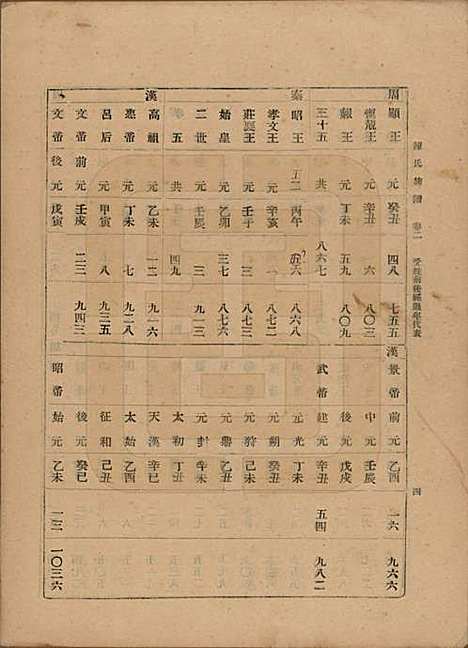 周顯王 元 癸丑 四八 七五五
慎靚王 元 辛丑 六 八〇三
赧王 元 丁未 五九 八〇九
三十五 共 八六七
秦昭王 五二 丙午 五?六 八六八
孝文王 元 辛亥 一 八七二
莊襄王 元 壬子 三 八七三
始皇 元 乙卯 三七 八七六
二世 元 壬辰 三 九一三
秦 五 共 四九
漢高祖 元 乙未 一二 九一六
惠帝 元 丁未 七 九二八
呂后 元 甲寅 八 九三五
文帝前 元 壬戌 二三 九四三
文帝後 元 戊寅
漢景帝前 元 乙酉 一六 九六六
中 元 壬辰
後 元 戊戌
武帝建 元 辛丑 五四 九八二
元光 丁未
元朔 癸丑
元狩 己未
元鼎 乙丑
元封 辛未
太初 丁丑
天漢 辛巳
太始 乙酉
征和 己丑
後元 癸巳
昭帝始元 乙未 一三 一〇三六
氏族譜 卷二
四